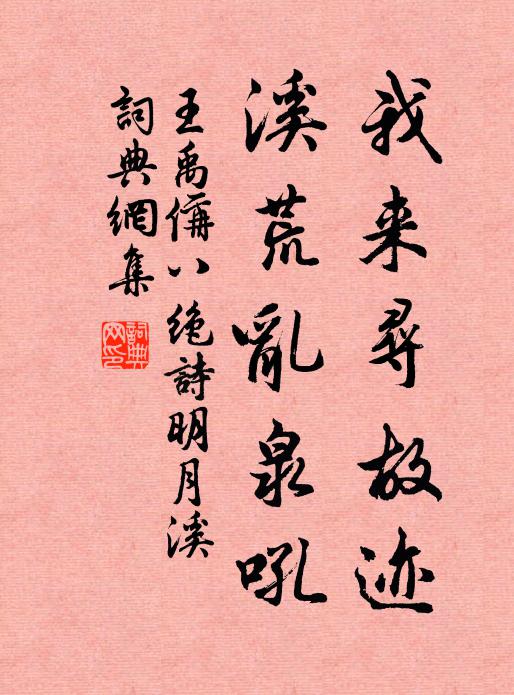 我来尋故迹
溪荒亂泉吼
王禹偁八絶詩明月溪
詞典網集
詞典网印